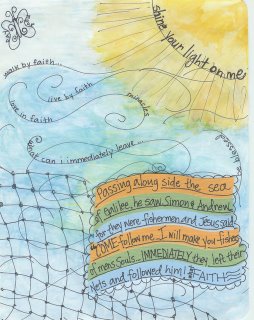 shine your light on me
walk by faith...
live by faith
miracles
are in faith
what can i immediately leave ...
Passing along side the sea
of Galilee, he saw Simon & Andrew
for they were fishermen and Jesus said
"COME follow me I will make you fishers
of mens Souls... IMMEDIATELY they left their
Nets and followed him!
FAITH